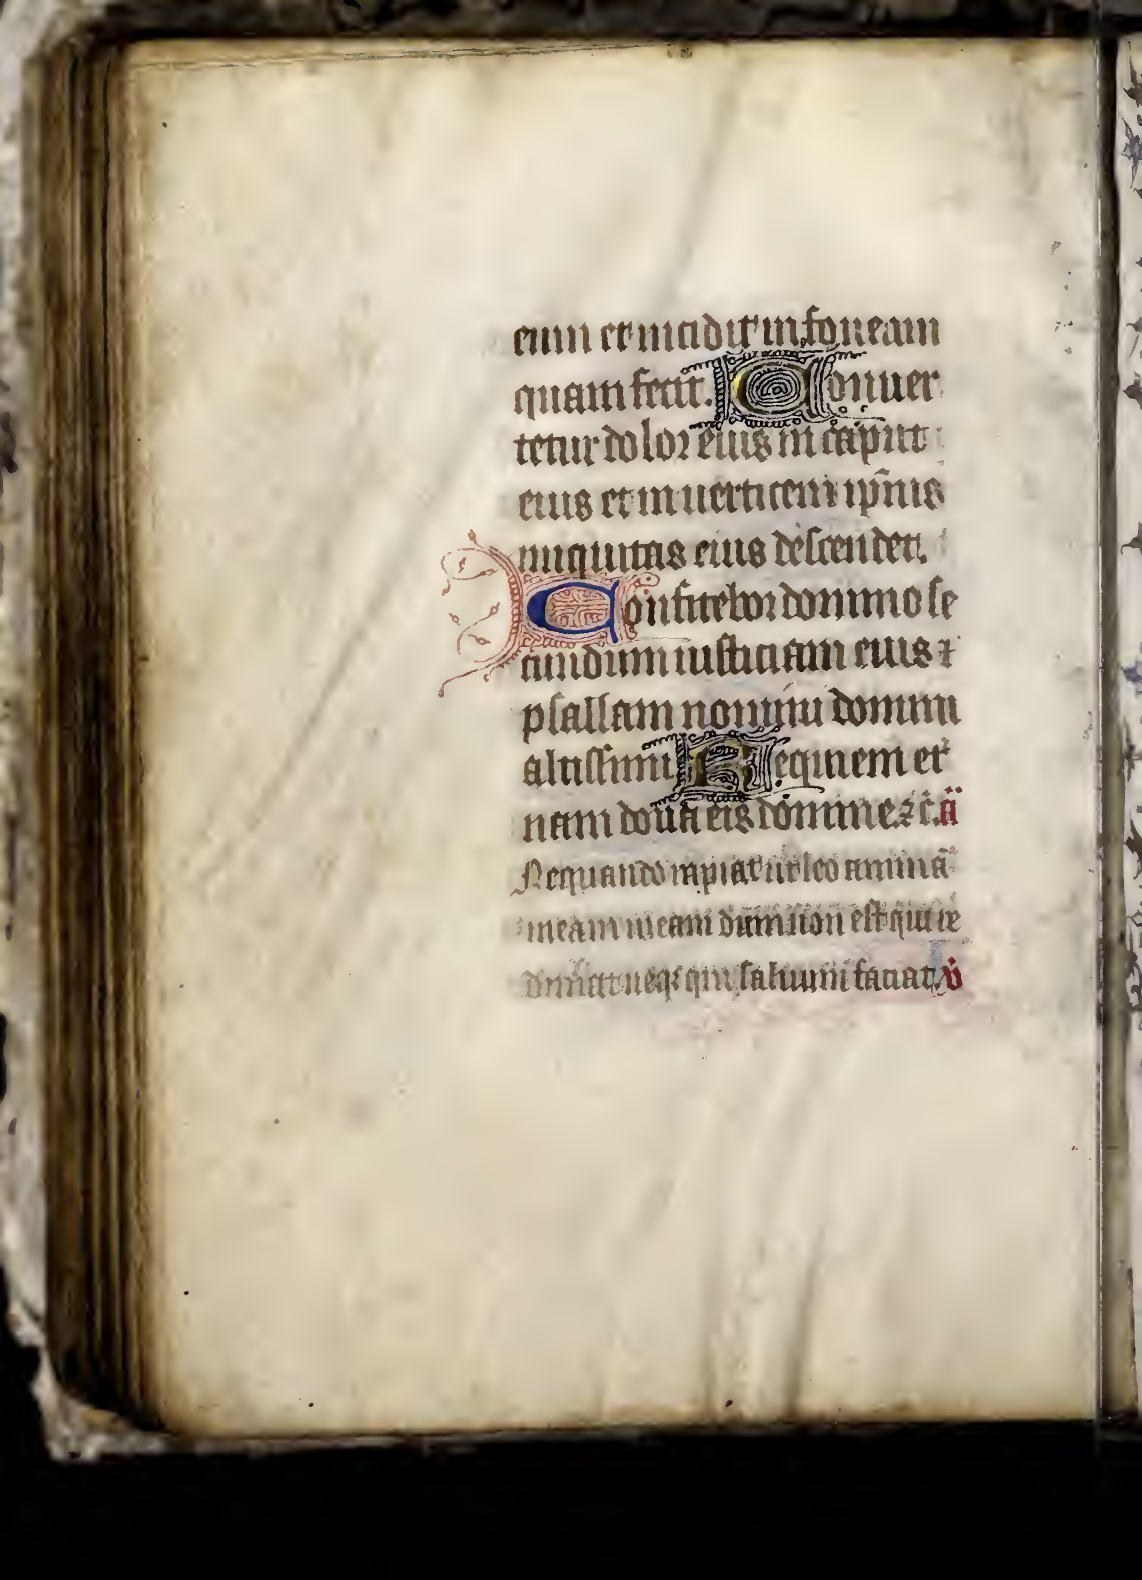 eum et incidit in foueam
quam fecit. Conuer
tetur dolor eius in caput
eius et in uerticem ip̄ius
iniquitas eius descendet.
Confitebor domino se
cundum iusticiam eius ⁊
psallam nomini domini
altissimi Requiem et̾
nam dona eis domine ⁊ c̄. a̾
Nequando rapiat ut leo animā
meam meam dum non est qui re
dimat neq; qui saluum faciat v̾